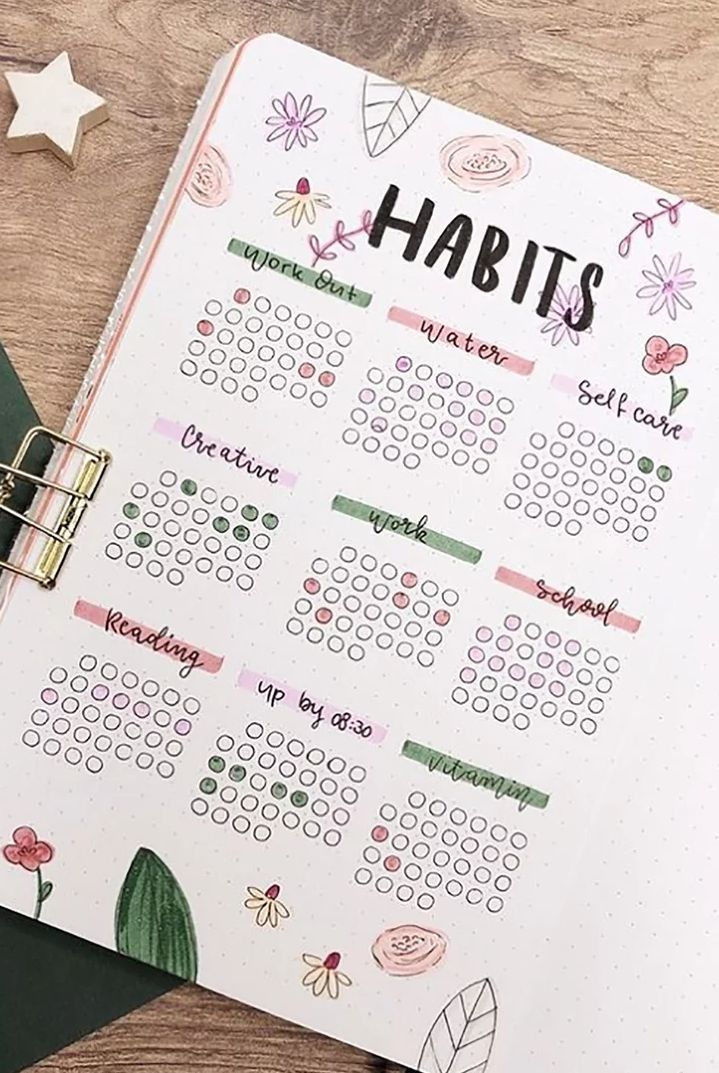 HABITS
Work Out
Water
Self care
Creative
Work
School
Reading
up by 08:30
Vitamin